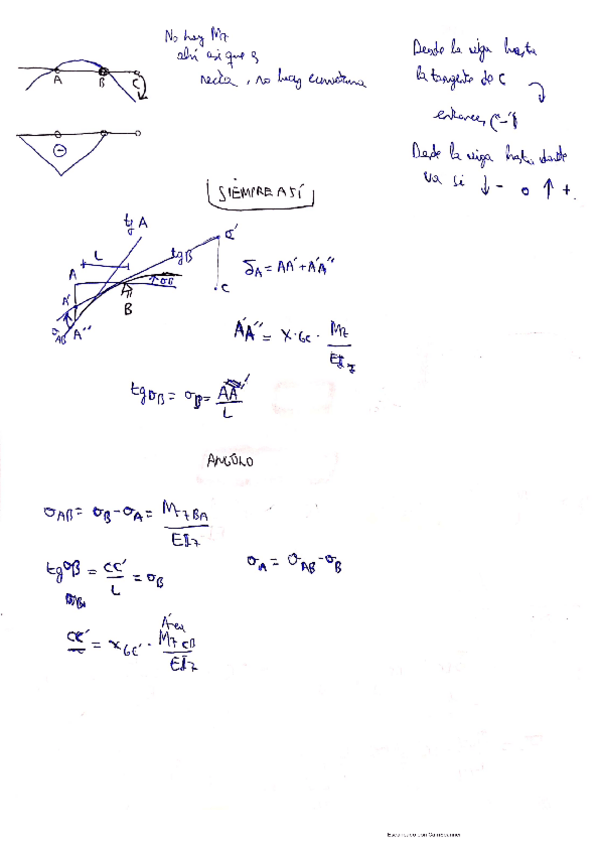 No hay Mz
ahí así que es
recta, no hay curvatura
A B C
Desde la viga hasta
la tangente de C
entonces (“-”)
Desde la viga hasta donde
va si ↓ - o ↑ +.
SIEMPRE ASÍ
tg A
L
tg B
C'
A
θB
A'
B
C
θAB A''
δA = AA' + A'A''
A'A'' = X·GC · Mz / EIz
tgθB = θB = AA' / L
ANGULO
θAB = θB - θA = Mz BA / EIz
tgθB = CC' / L = θB
θA = θAB - θB
CC' = XGC' · Área Mz CB / EIz
Escaneado con CamScanner